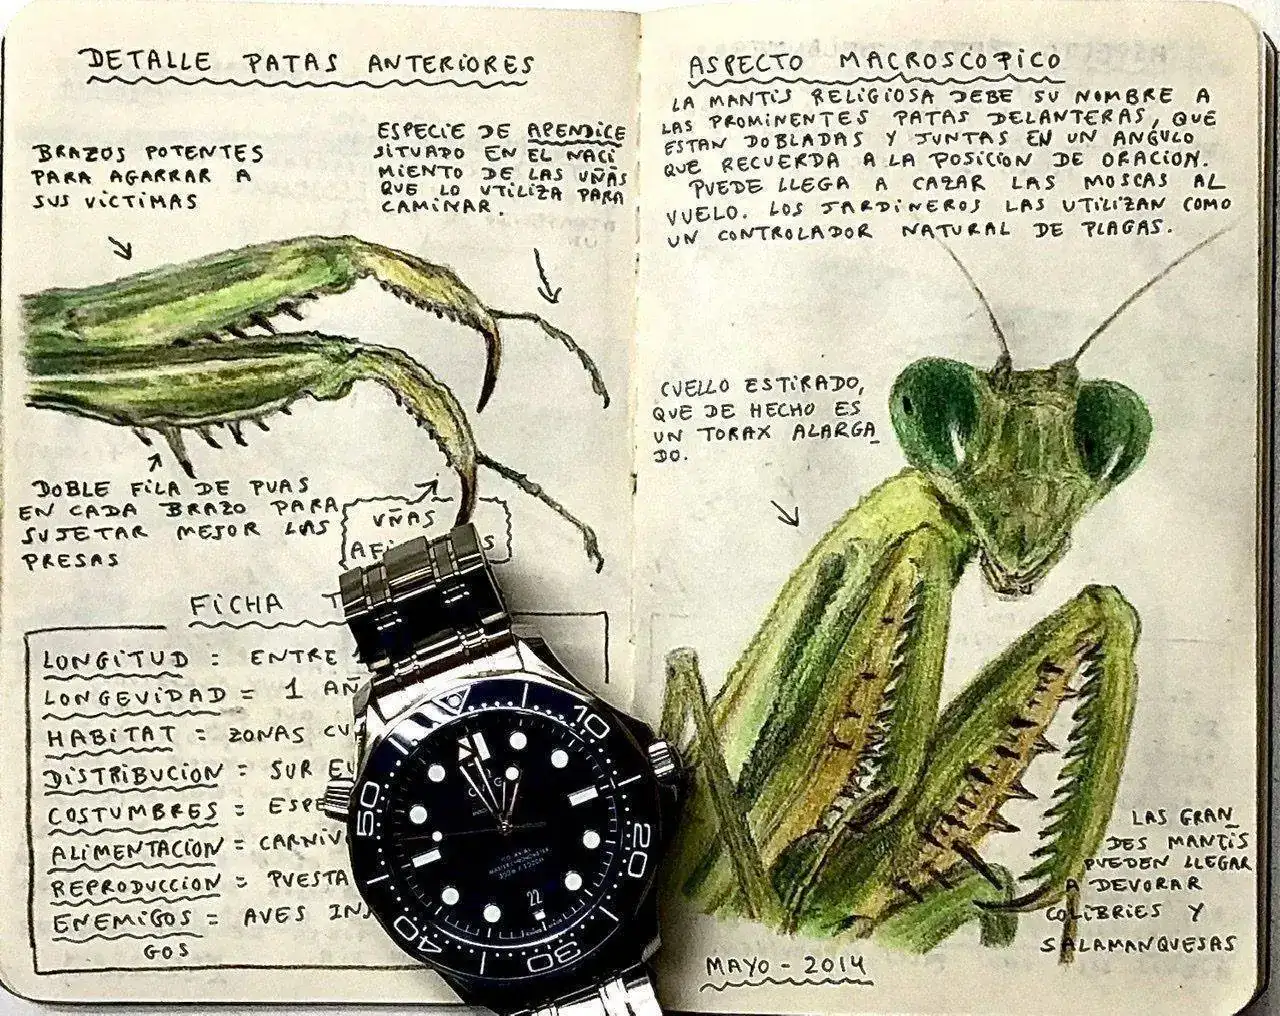 DETALLE PATAS ANTERIORES
BRAZOS POTENTES
PARA AGARRAR A
SUS VICTIMAS
ESPECIE DE APENDICE
SITUADO EN EL NACI
MIENTO DE LAS UÑAS
QUE LO UTILIZA PARA
CAMINAR.
DOBLE FILA DE PUAS
EN CADA BRAZO PARA
SUJETAR MEJOR LAS
PRESAS
UÑAS
FICHA
LONGITUD : ENTRE
LONGEVIDAD = 1
HABITAT : ZONAS
DISTRIBUCION = SUR
COSTUMBRES =
ALIMENTACION =
REPRODUCCION = PUESTA
ENEMIGOS = AVES
GOS
10
20
30
40
50
22
ASPECTO MACROSCOPICO
LA MANTIS RELIGIOSA DEBE SU NOMBRE A
LAS PROMINENTES PATAS DELANTERAS, QUE
ESTAN DOBLADAS Y JUNTAS EN UN ANGULO
QUE RECUERDA A LA POSICION DE ORACION.
PUEDE LLEGA A CAZAR LAS MOSCAS AL
VUELO. LOS JARDINEROS LAS UTILIZAN COMO
UN CONTROLADOR NATURAL DE PLAGAS.
CUELLO ESTIRADO,
QUE DE HECHO ES
UN TORAX ALARGA_
DO.
LAS GRAN_
DES MANTIS
PUEDEN LLEGAR
A DEVORAR
COLIBRIES Y
SALAMANQUESAS
MAYO - 2014